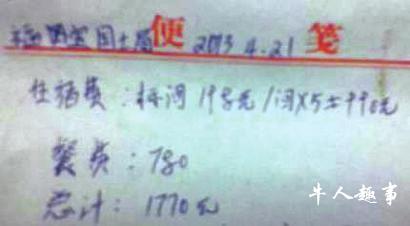 国土局 便 2013.4.21 笺
住宿费：标间198元/间×5=990元
餐费：780
总计：1770元
牛人趣事